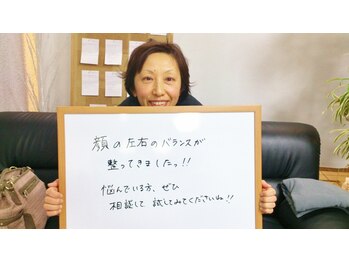 顔の左右のバランスが
整ってきましたっ!!
悩んでいる方、ぜひ
相談して試してみてくださいね!!